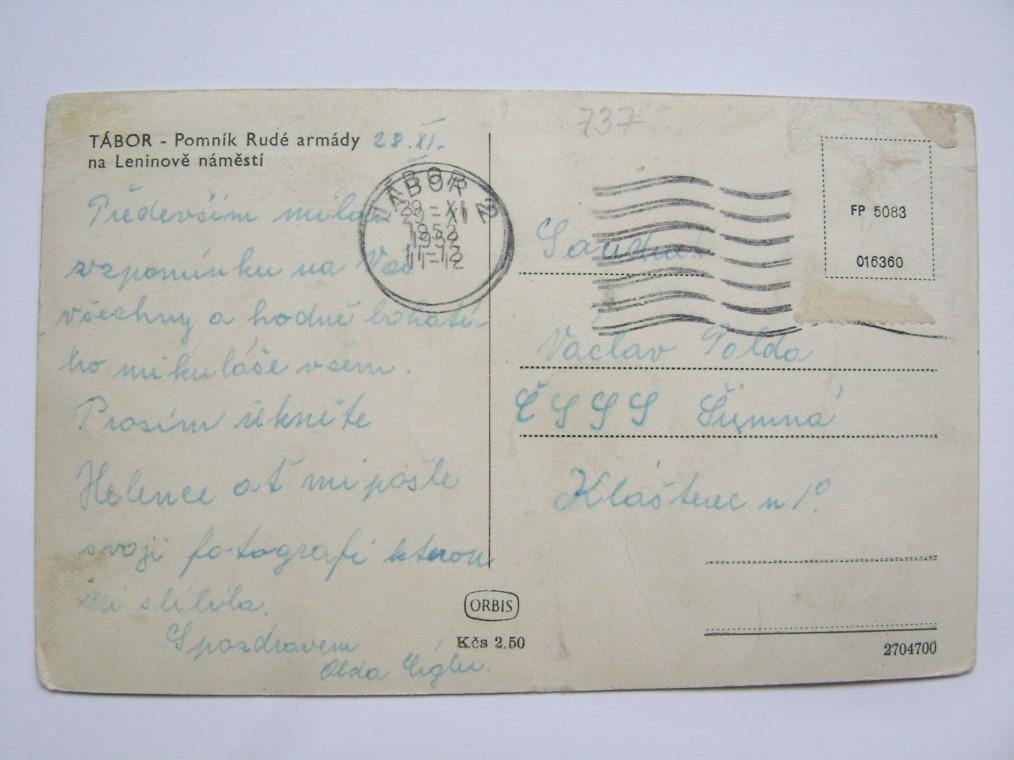 TÁBOR - Pomník Rudé armády
na Leninově náměstí
28.XI.
Především milou
vzpomínku na Vás
všechny a hodně bohaté-
ho mikuláše všem.
Prosím řekněte
Helence ať mi pošle
svoji fotografi kterou
mi slíbila.
S pozdravem
Olda
737
TÁBOR 2
29-XI
1952
11-12
FP 5083
016360
Soudruh
Václav Polda
ČSSS Šumná
Klášterec n/O
ORBIS
Kčs 2.50
2704700